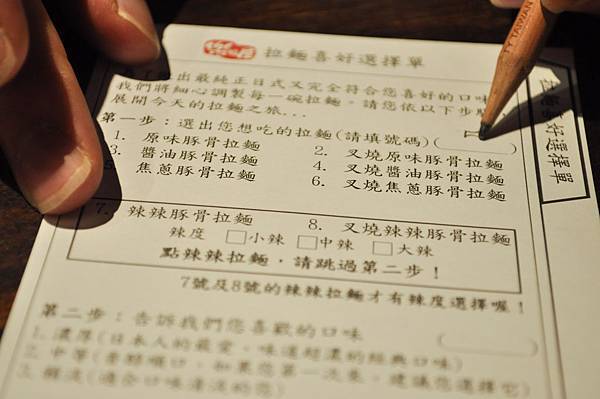 TY TAIWAN
拉麵喜好選擇單
出最純正日式又完全符合您喜好的口味
我們將細心調製每一碗拉麵。請您依以下步驟
展開今天的拉麵之旅...
第一步：選出您想吃的拉麵(請填號碼)
1. 原味豚骨拉麵 2. 叉燒原味豚骨拉麵
3. 醬油豚骨拉麵 4. 叉燒醬油豚骨拉麵
5. 焦蔥豚骨拉麵 6. 叉燒焦蔥豚骨拉麵
7. 辣辣豚骨拉麵 8. 叉燒辣辣豚骨拉麵
辣度 □小辣 □中辣 □大辣
點辣辣拉麵，請跳過第二步！
7號及8號的辣辣拉麵才有辣度選擇喔！
第二步：告訴我們您喜歡的口味
1. 濃厚(日本人的最愛，味道超濃的經典口味)
2. 中等(香醇順口，如果您第一次來，建議您選擇它)
3. 清淡(適合口味清淡的您)
拉麵喜好選擇單